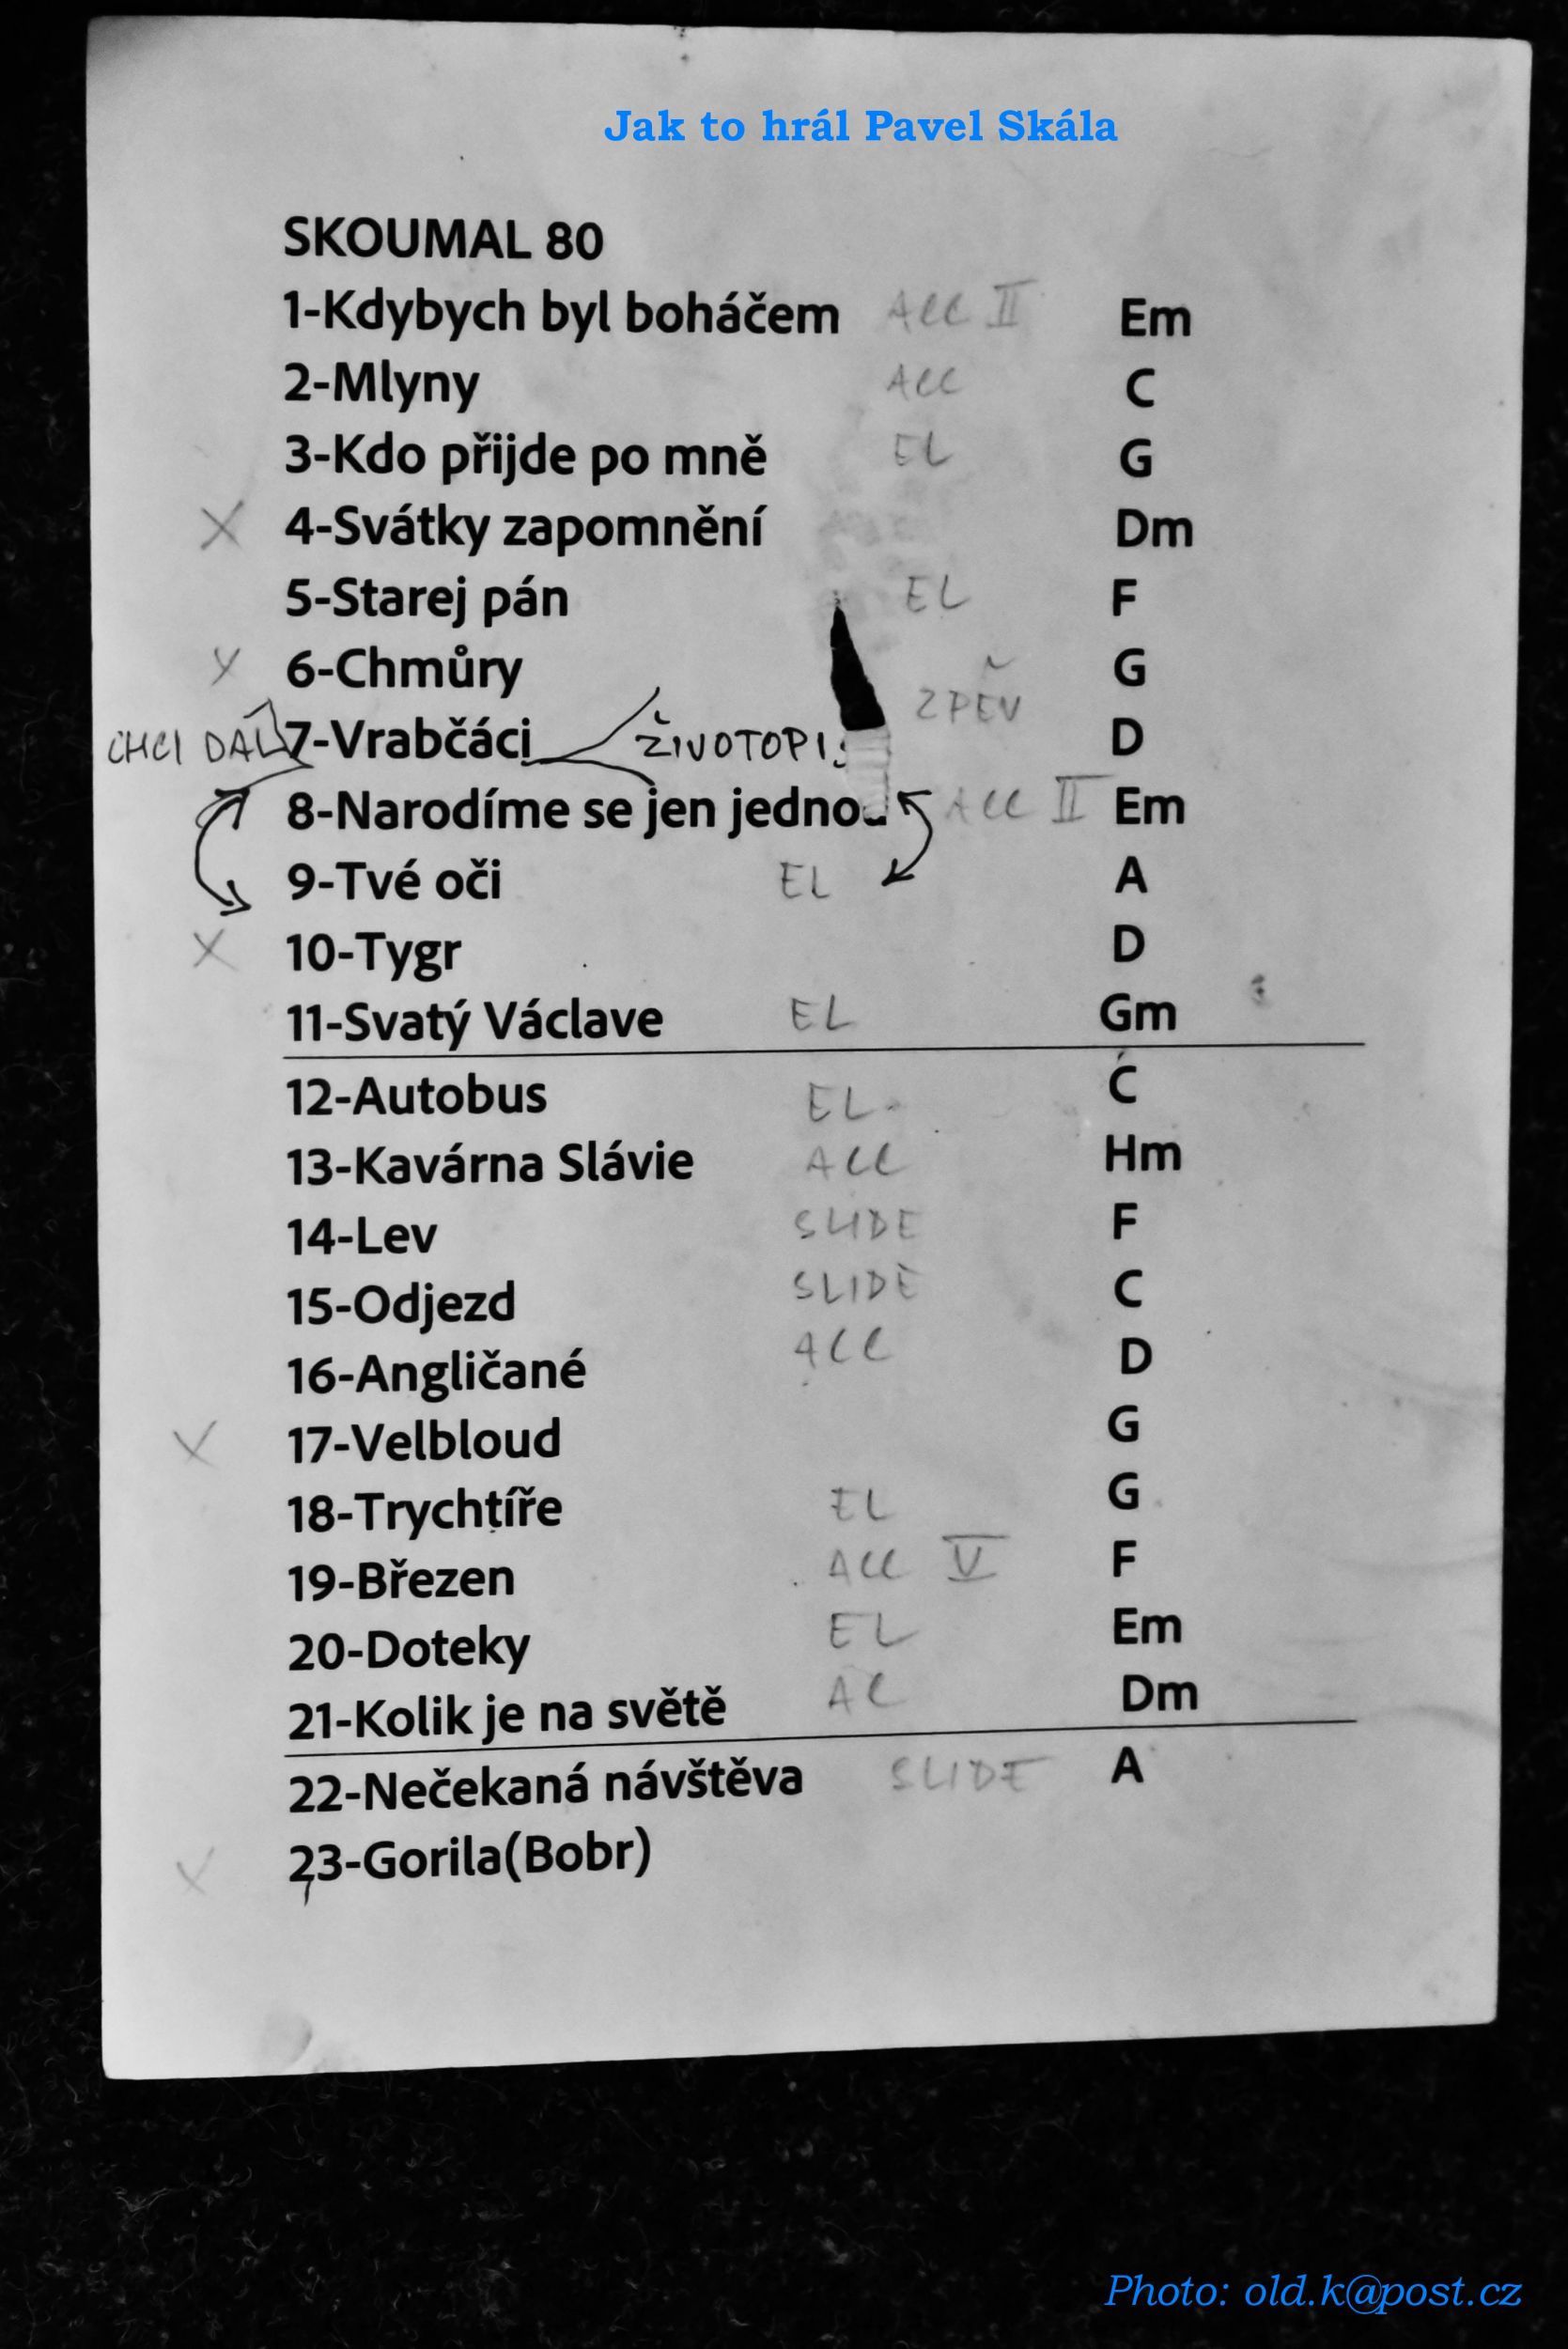 Jak to hrál Pavel Skála
SKOUMAL 80
1-Kdybych byl boháčem ACC II Em
2-Mlyny ACC C
3-Kdo přijde po mně EL G
X 4-Svátky zapomnění Dm
5-Starej pán EL F
X 6-Chmůry G
ZPĚV
CHCI DÁL 7-Vrabčáci ŽIVOTOPIS D
8-Narodíme se jen jednou ACC II Em
9-Tvé oči EL A
X 10-Tygr D
11-Svatý Václave EL Gm
12-Autobus EL C
13-Kavárna Slávie ACC Hm
14-Lev SLIDE F
15-Odjezd SLIDE C
16-Angličané ACC D
X 17-Velbloud G
18-Trychtíře EL G
19-Březen ACC V F
20-Doteky EL Em
21-Kolik je na světě AC Dm
22-Nečekaná návštěva SLIDE A
X 23-Gorila(Bobr)
Photo: old.k@post.cz